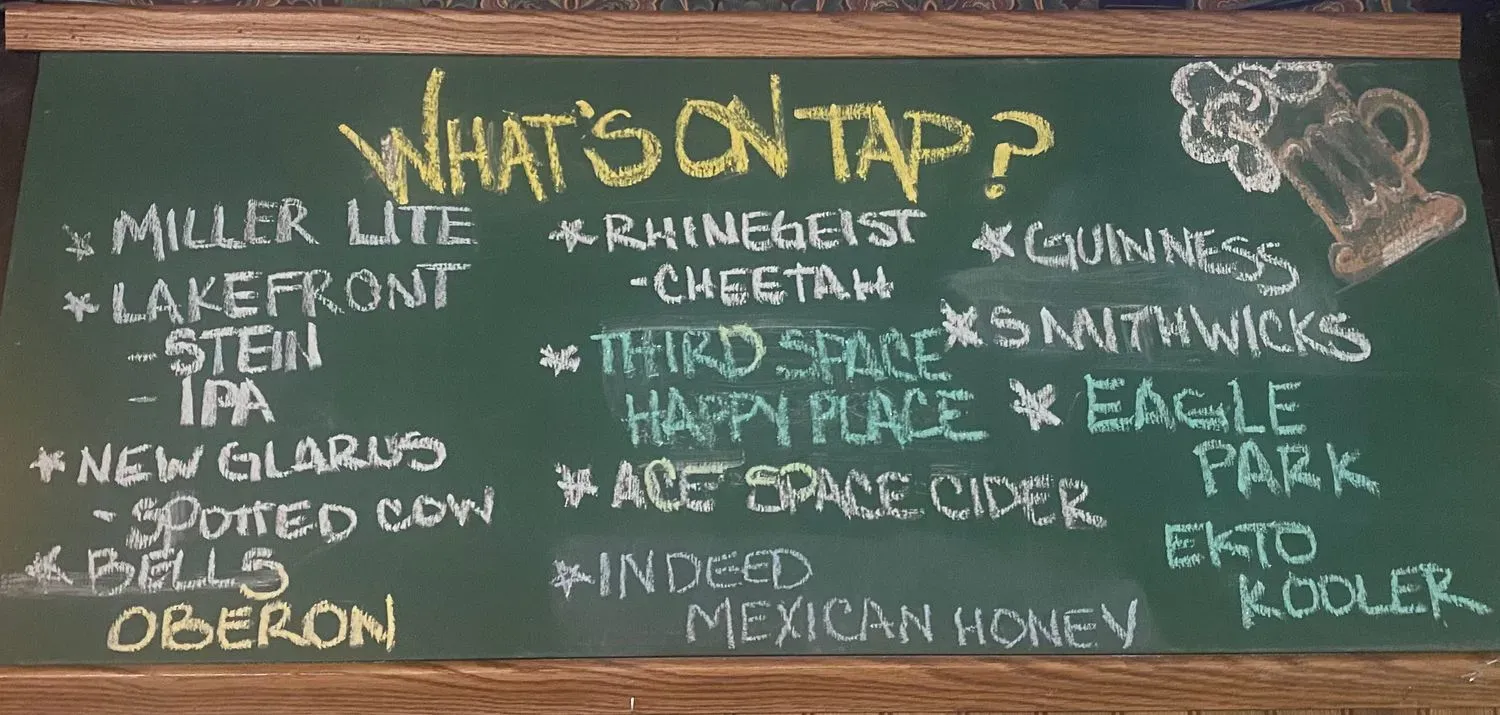 WHAT'S ON TAP?
* MILLER LITE
* LAKEFRONT
- STEIN
- IPA
* NEW GLARUS
- SPOTTED COW
* BELLS
OBERON
* RHINEGEIST
- CHEETAH
* THIRD SPACE
HAPPY PLACE
* ACE SPACE CIDER
* INDEED
MEXICAN HONEY
* GUINNESS
* SMITHWICKS
* EAGLE
PARK
EKTO
KOOLER